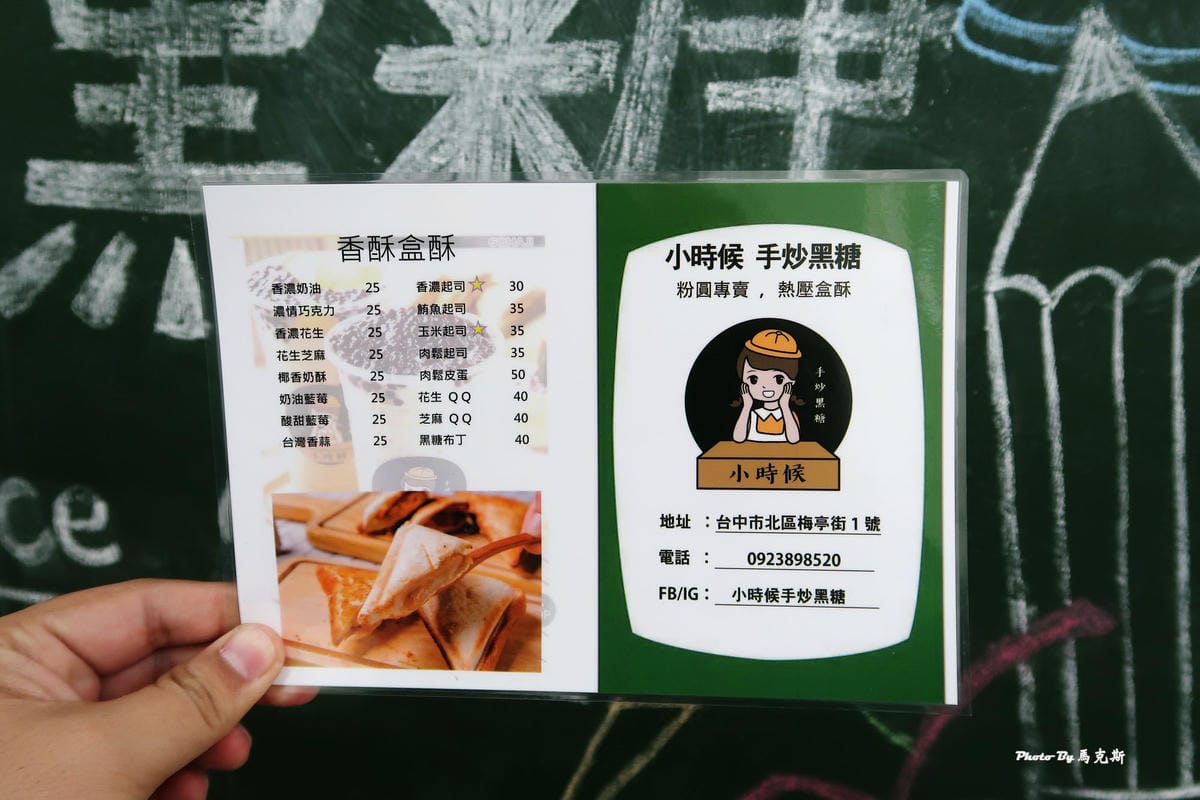 香酥盒酥
香濃奶油 25
濃情巧克力 25
香濃花生 25
花生芝麻 25
椰香奶酥 25
奶油藍莓 25
酸甜藍莓 25
台灣香蒜 25
香濃起司 30
鮪魚起司 35
玉米起司 35
肉鬆起司 35
肉鬆皮蛋 50
花生 QQ 40
芝麻 QQ 40
黑糖布丁 40
小時候 手炒黑糖
粉圓專賣 , 熱壓盒酥
手炒黑糖
小時候
地址 : 台中市北區梅亭街1號
電話 : 0923898520
FB/IG : 小時候手炒黑糖
ce
Photo By 馬克斯